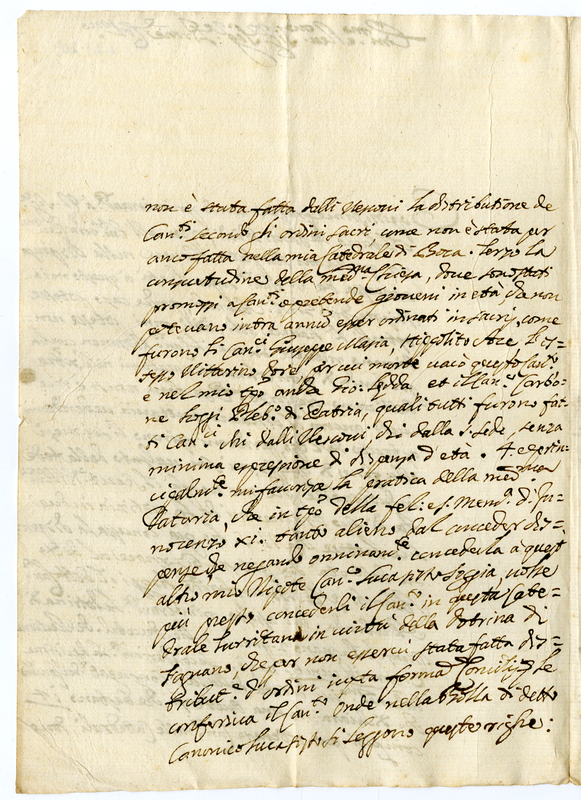 non è stata fatta dalli Vescovi la distributione de
Can.ti secondo gli ordini sacri, come non è stata per
anco fatta nella mia Catedrale di Bosa. Terzo la
consuetudine della med.ma Chiesa, dove sono stati
promossi a Can.ti e prebende giovani in età che non
potevano intra annum esser ordinati in sacris, come
furono li Can.ci Giuseppe Masia, Hippolito
stesso Vittorino Dore, per cui morte vacò questo Can.to
e nel mio tpō anche Gio: Ledda et il Can.co Carbo=
ne hoggi Pleb.o di Patria, quali tutti furono fat=
ti Can.ci chi dalli Vescovi, chi dalla S. Sede, senza
minima espressione di dispensa d'età. 4. e prin=
cipalm.te mi favorisce la pratica della med.ma
Dataria, che in tpō della fel: e s. Mem.a di In=
nocenzo XI. tanto alieno dal conceder dis=
pense che negando onninam.te concederla a quest'
altro mio Nipote Can.co Luca
più presto concederli il Can.to in questa Cate=
drale Turritana in virtù della dotrina di
Fagnano, che per non esservi stata fatta dis=
tribut.e d'ordini iuxta formam Concilij se
conferiva il Can.to onde nella Bolla di detto
Canonico Luca si leggono queste righe: